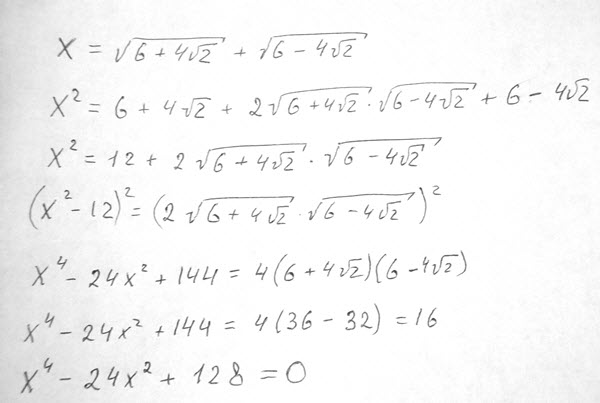 x = √(6 + 4√2) + √(6 - 4√2)
x² = 6 + 4√2 + 2√(6 + 4√2) · √(6 - 4√2) + 6 - 4√2
x² = 12 + 2√(6 + 4√2) · √(6 - 4√2)
(x² - 12)² = (2√(6 + 4√2) · √(6 - 4√2))²
x⁴ - 24x² + 144 = 4(6 + 4√2)(6 - 4√2)
x⁴ - 24x² + 144 = 4(36 - 32) = 16
x⁴ - 24x² + 128 = 0